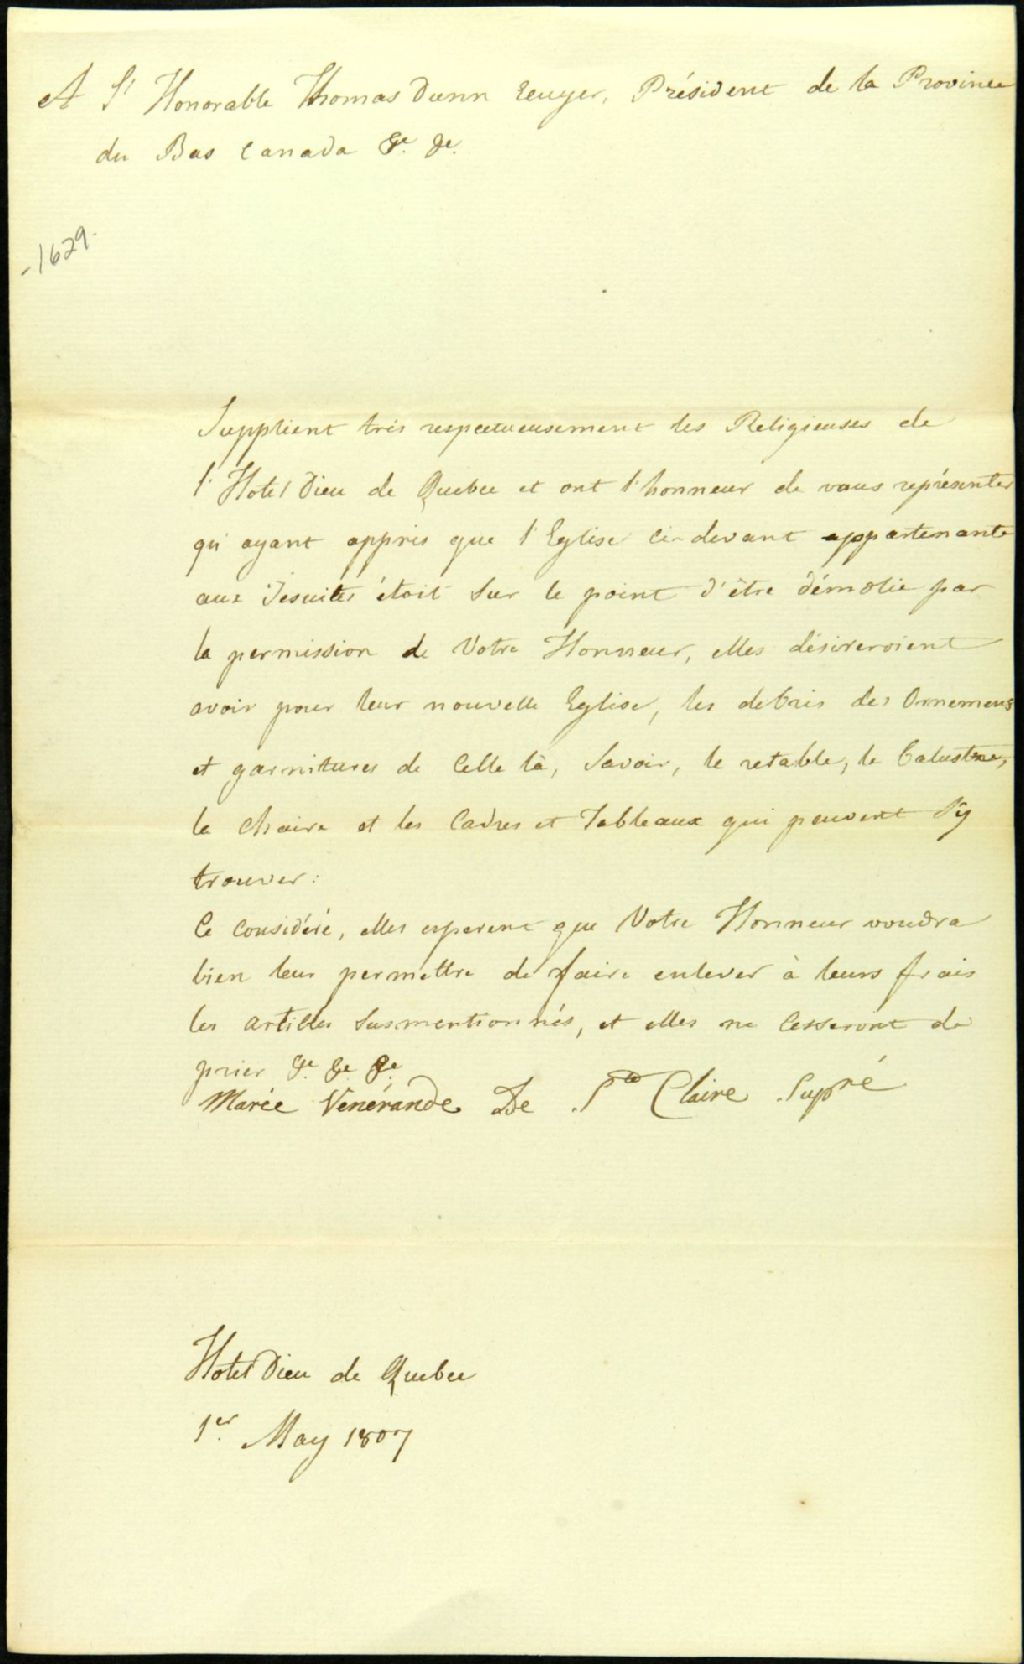 A l'Honorable Thomas Dunn Ecuyer, Président de la Province
du Bas Canada &c. &c.
-1629-
Supplient très respectueusement les Religieuses de
l'Hotel Dieu de Quebec et ont l'honneur de vous représenter
qu'ayant appris que l'Eglise ci-devant appartenante
aux Jesuites étoit sur le point d'être démolie par
la permission de Votre Honneur, elles désireroient
avoir pour leur nouvelle Eglise, les debris des Ornemens
et garnitures de Celle là, Savoir, le retable, le balustre,
la Chaire et les Cadres et Tableaux qui peuvent s'y
trouver:
Ce considéré, elles esperent que Votre Honneur voudra
bien leur permettre de faire enlever à leurs frais
les articles Susmentionnés, et elles ne Cesseront de
prier &c. &c. &c.
Marie Venérande De Ste Claire Supré
Hotel Dieu de Quebec
1er May 1807